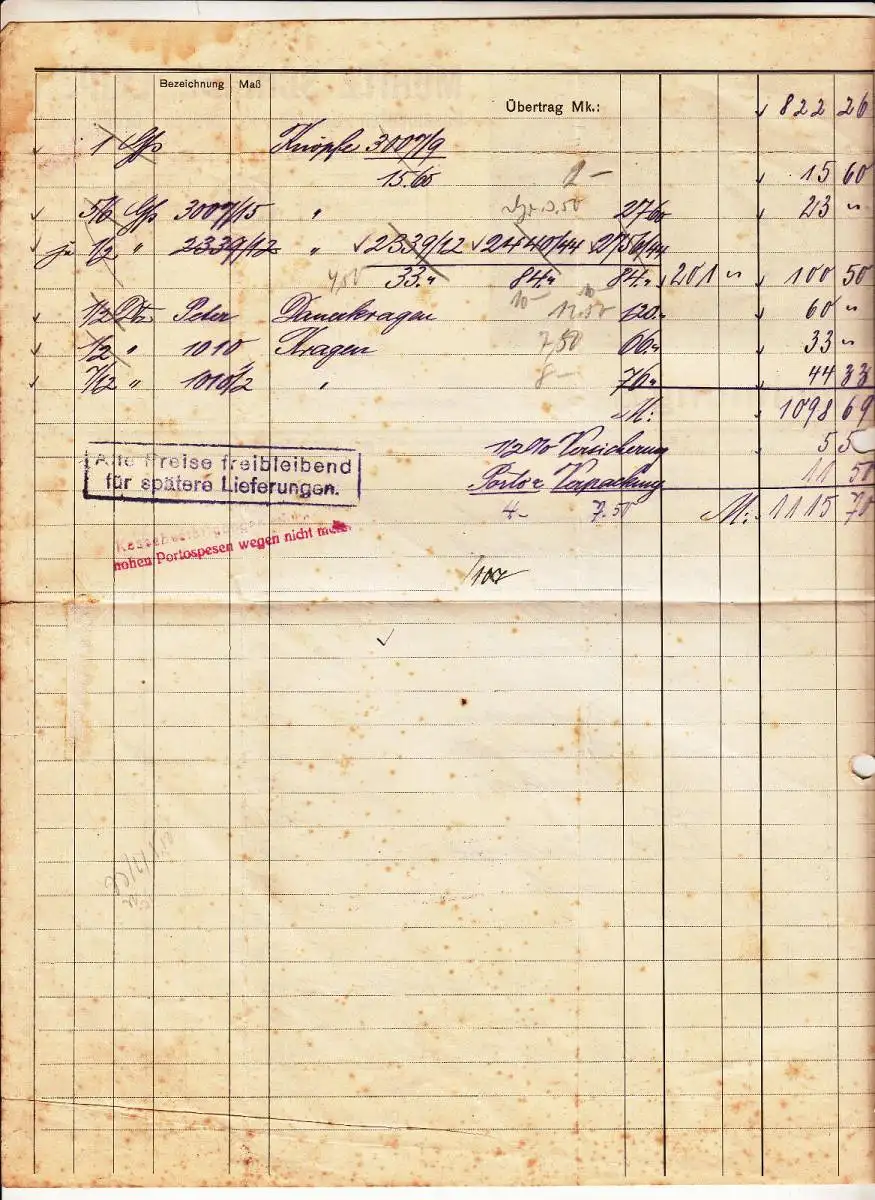 Bezeichnung Maß
Übertrag Mk.: 822 26
1 Gſs Knöpfe 3007/9
15.60 2- 15 60
5/6 Gſs 3007/15 " 27.60 23 "
je 1/2 " 2339/12 " 2339/12 2440/44 2756/44
4,50 33." 84." 84." 201 " 100 50
10- 10
1/2 Dtz Peter Dauerkragen 120." 60 "
1/2 " 1010 Kragen 7,50 66." 33 "
7/12 " 1010/2 " 8- 76." 44 33
M: 1098 69
1/2 % Versicherung 5 5
Porto & Verpackung 11 50
4- 7.50 M: 1115 70
Alle Preise freibleibend
für spätere Lieferungen.
hohen Portospesen wegen nicht mehr.